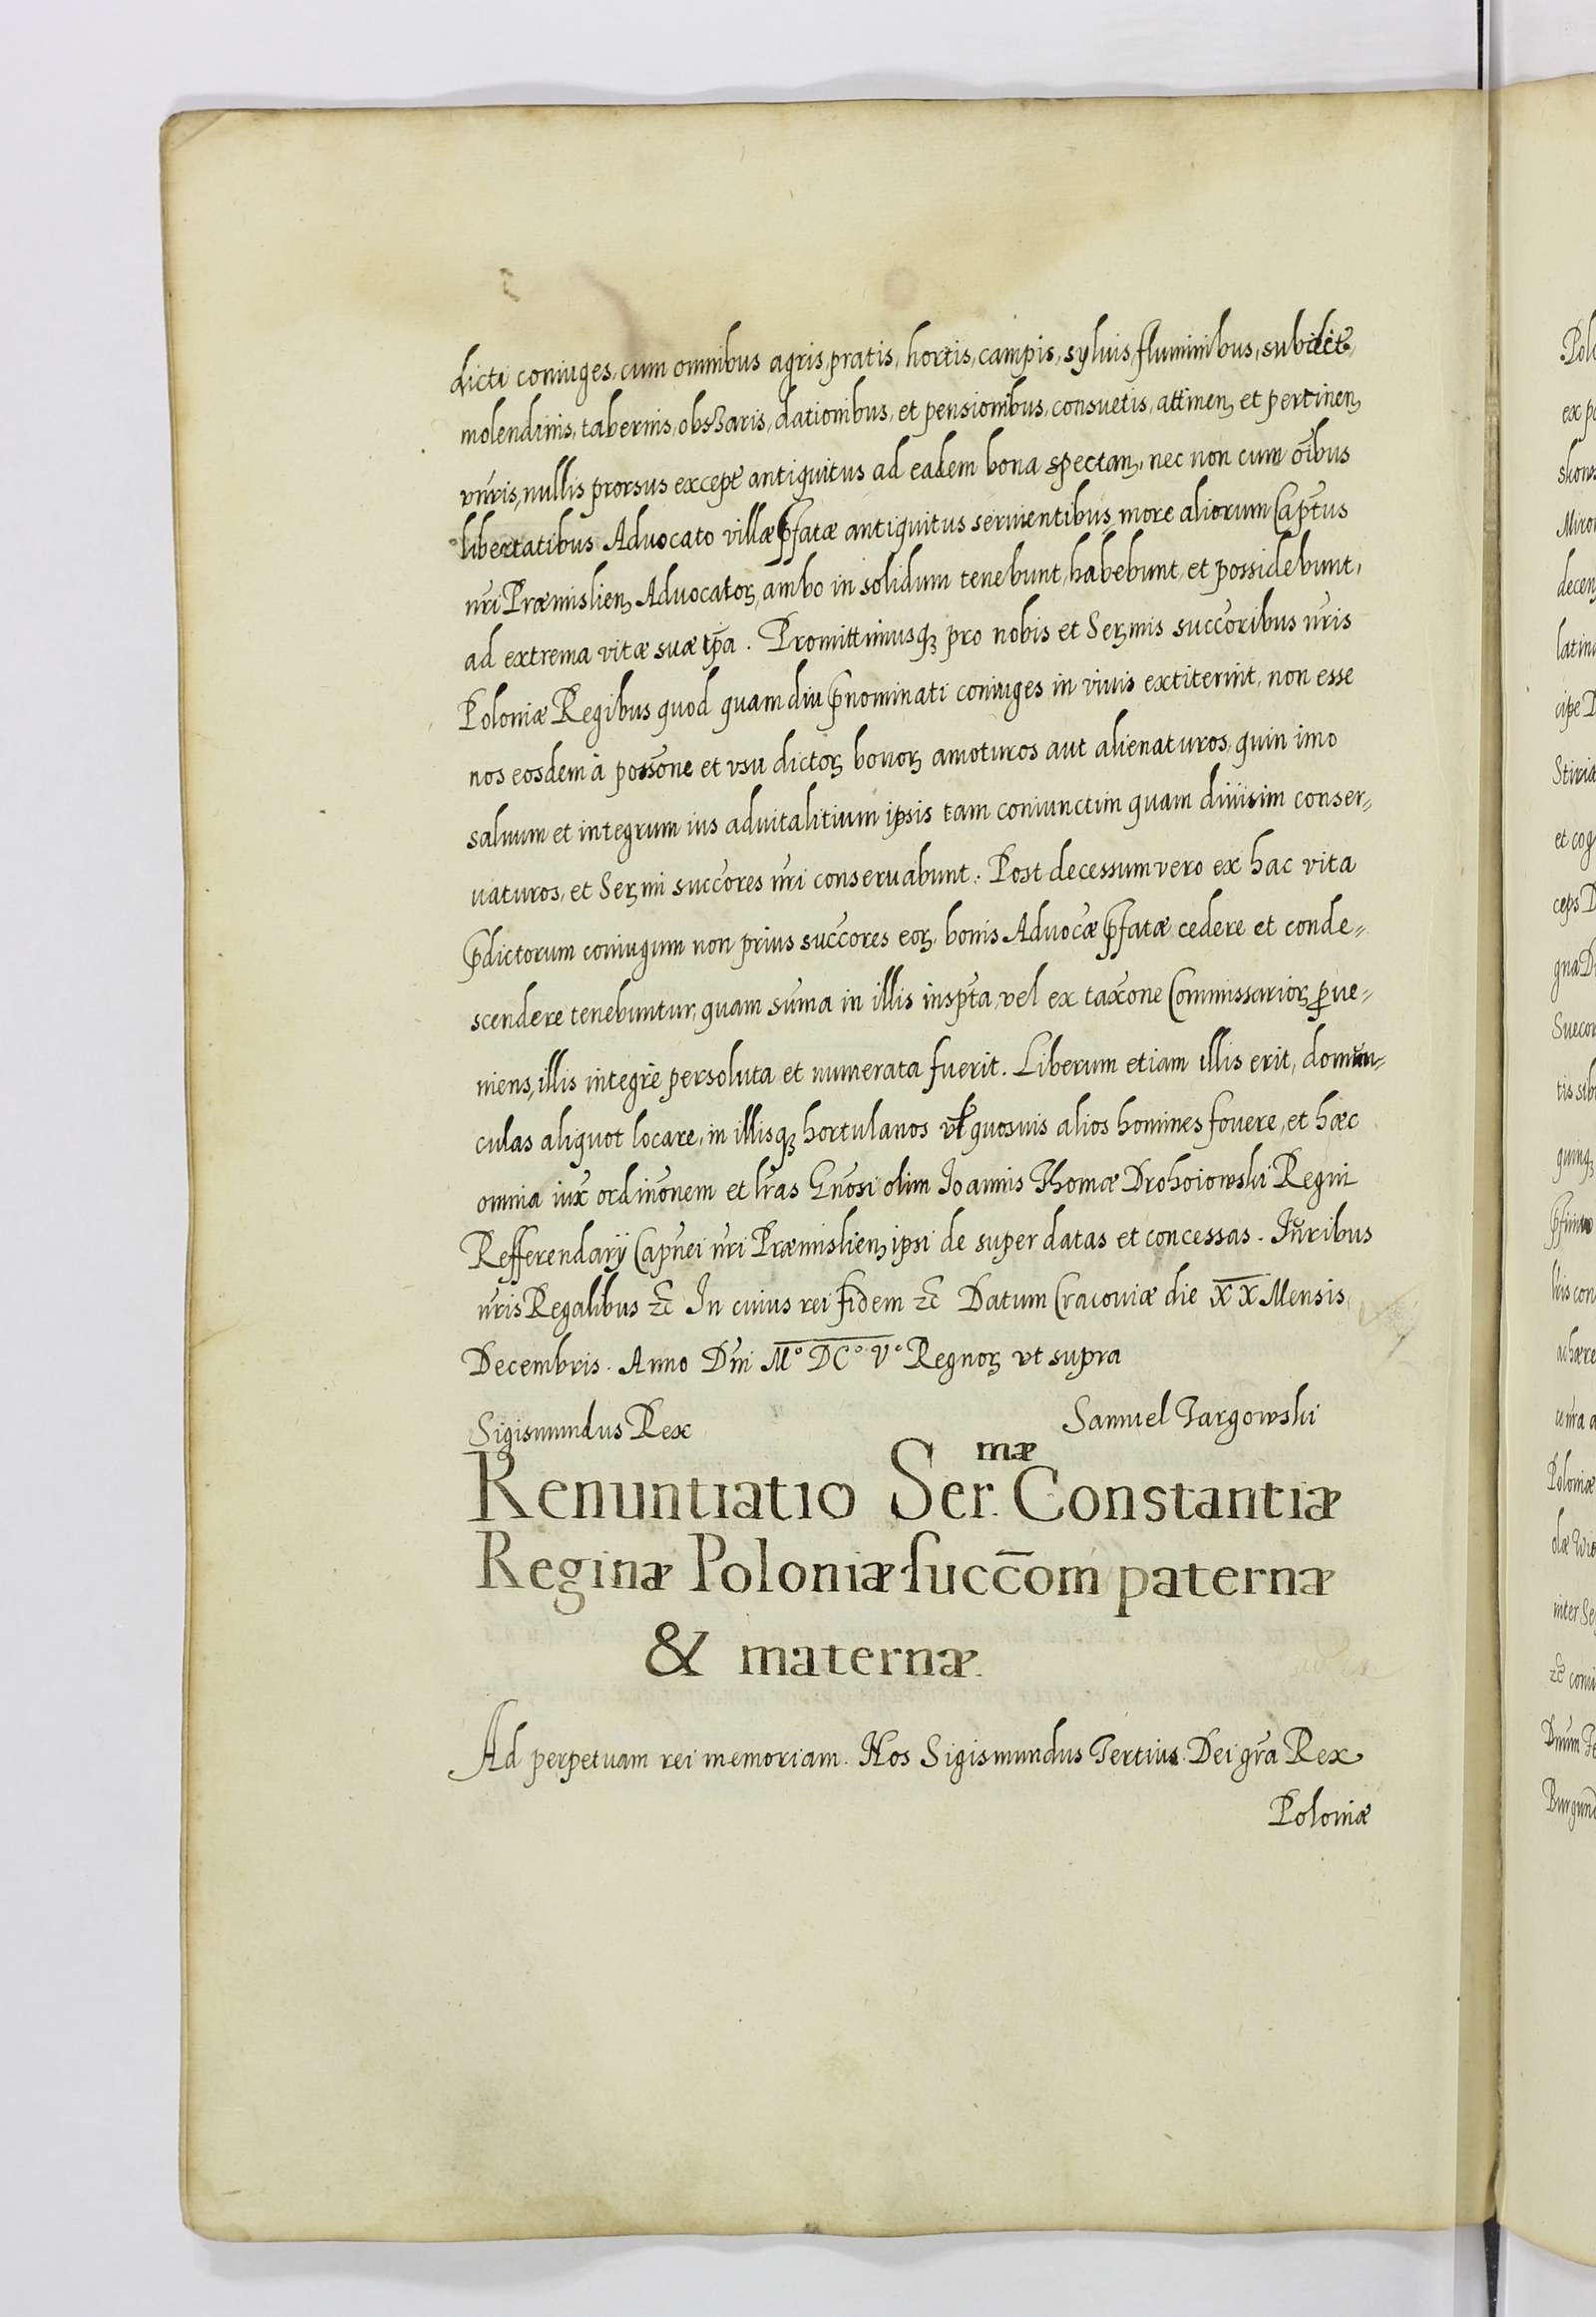 dicti coniuges, cum omnibus agris, pratis, hortis, campis, syluis, fluminibus, subdit̃,
molendinis, tabernis, obszaris, dationibus, et pensionibus, consuetis, attinen, et pertinen,
vn̄ris, nullis prorsus except̃ antiquitus ad eadem bona spectan, nec non cum oībus
libertatibus Advocato villæ p̄fatæ antiquitus seruientibus more aliorum Capt̄us
nr̄i Præmislien, Advocatoꝝ, ambo in solidum tenebunt, habebunt, et possidebunt,
ad extrema vitæ suæ tp̄a. Promittimusqꝫ pro nobis et Serꝫmis succoribus nr̄is
Poloniæ Regibus quod quam diu p̄nominati coniuges in viuis extiterint, non esse
nos eosdem à possōne et vsu dictoꝝ bonoꝝ amoturos aut alienaturos, quin imo
saluum et integrum ius aduitalitium ipsis tam coniunctim quam diuisim conser⸗
uaturos, et Serꝫmi succores nr̄i conseruabunt. Post decessum vero ex hac vita
p̄dictorum coniugum non prius succores eoꝝ, bonis Advocæ p̄fatæ cedere et conde⸗
scendere tenebuntur, quam sum̄a in illis insp̄ta, vel ex taxōne Commissarioꝝ ꝓue⸗
niens, illis integrè persoluta et numerata fuerit. Liberum etiam illis erit, domun⸗
culas aliquot locare, in illisqꝫ hortulanos vł quosuis alios homines fouere, et hæc
omnia iux̄ ordinōnem et lr̄as Gn̄osi olim Joannis Thomæ Drohoiowski Regni
Refferendarij Capn̄ei nr̄i Præmislien, ipsi de super datas et concessas. Ju̇ribus
nr̄is Regalibus ꝛc̄ In cuius rei fidem ꝛc̄ Datum Cracouiæ die XX Mensis
Decembris. Anno Dn̄i M° DC° V° Regnoꝝ vt supra
Sigismundus Rex Samuel Targowski
Renuntiatio Ser.mæ Constantiæ
Reginæ Poloniæ succ̄om paternæ
& maternæ.
Ad perpetuam rei memoriam. Nos Sigismundus Tertius Dei gr̄a Rex
Poloniæ